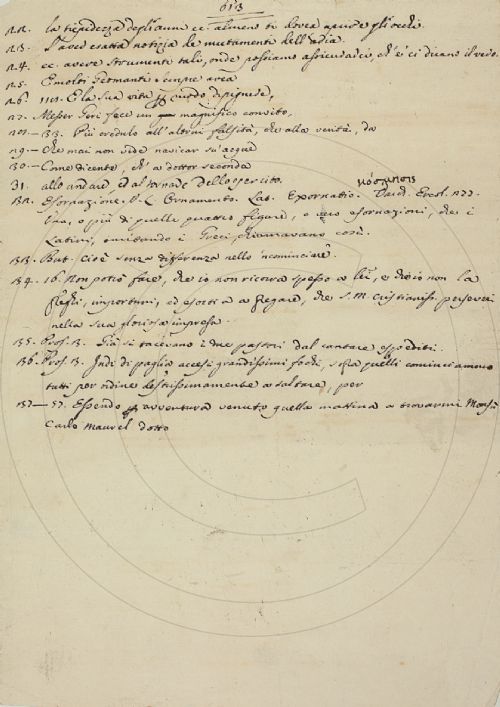 613
22. la tiepidezza degli anni ec. almeno ti dovea aprire gli occhi.
23. D'aver esatta notizia de' mutamenti dell'aria.
24. ec. avere strumenti tali, onde possiamo assicurarci, ch'e' ci dicano il vero.
25. E molti Germanti sempre avea
26. 110. E la sua vita p modo dipignere,
27. Messer Geri fece un magnifico convito,
28. — 33. Più credulo all'altrui falsità, che alla verità, da
29 — Che mai non vide navicar su'acque
30 — Come dicente, ch'a dottor seconda
31. allo andare, ed al tornare dello esercito.
κόσμησις
32. Esornazione. V. L. Ornamento. Lat. Exornatio. Varch. Ercol. 277.
Una, o più di quelle quattro figure, o vero esornazioni, che i
Latini, imitando i Greci, chiamavano così.
33. But. Cioè senza differenza nello 'ncominciare.
34. 16. Non potrò fare, che io non ricorra spesso a lei, e che io non la
preghi, importuni, ed esorti a pregare, che S. M. Cristianiss. perseveri
nella sua gloriosa impresa.
35. Pros. 3. Già si tacevano i due pastori dal cantare espediti.
36. Pros. 3. Indi di paglia accesi grandissimi fochi, sopra quelli cominciammo
tutti per ordine destrissimamente a saltare, per
37 — 57. Essendo p avventura venuto quella mattina a trovarmi Monsù
Carlo Maurel dotto